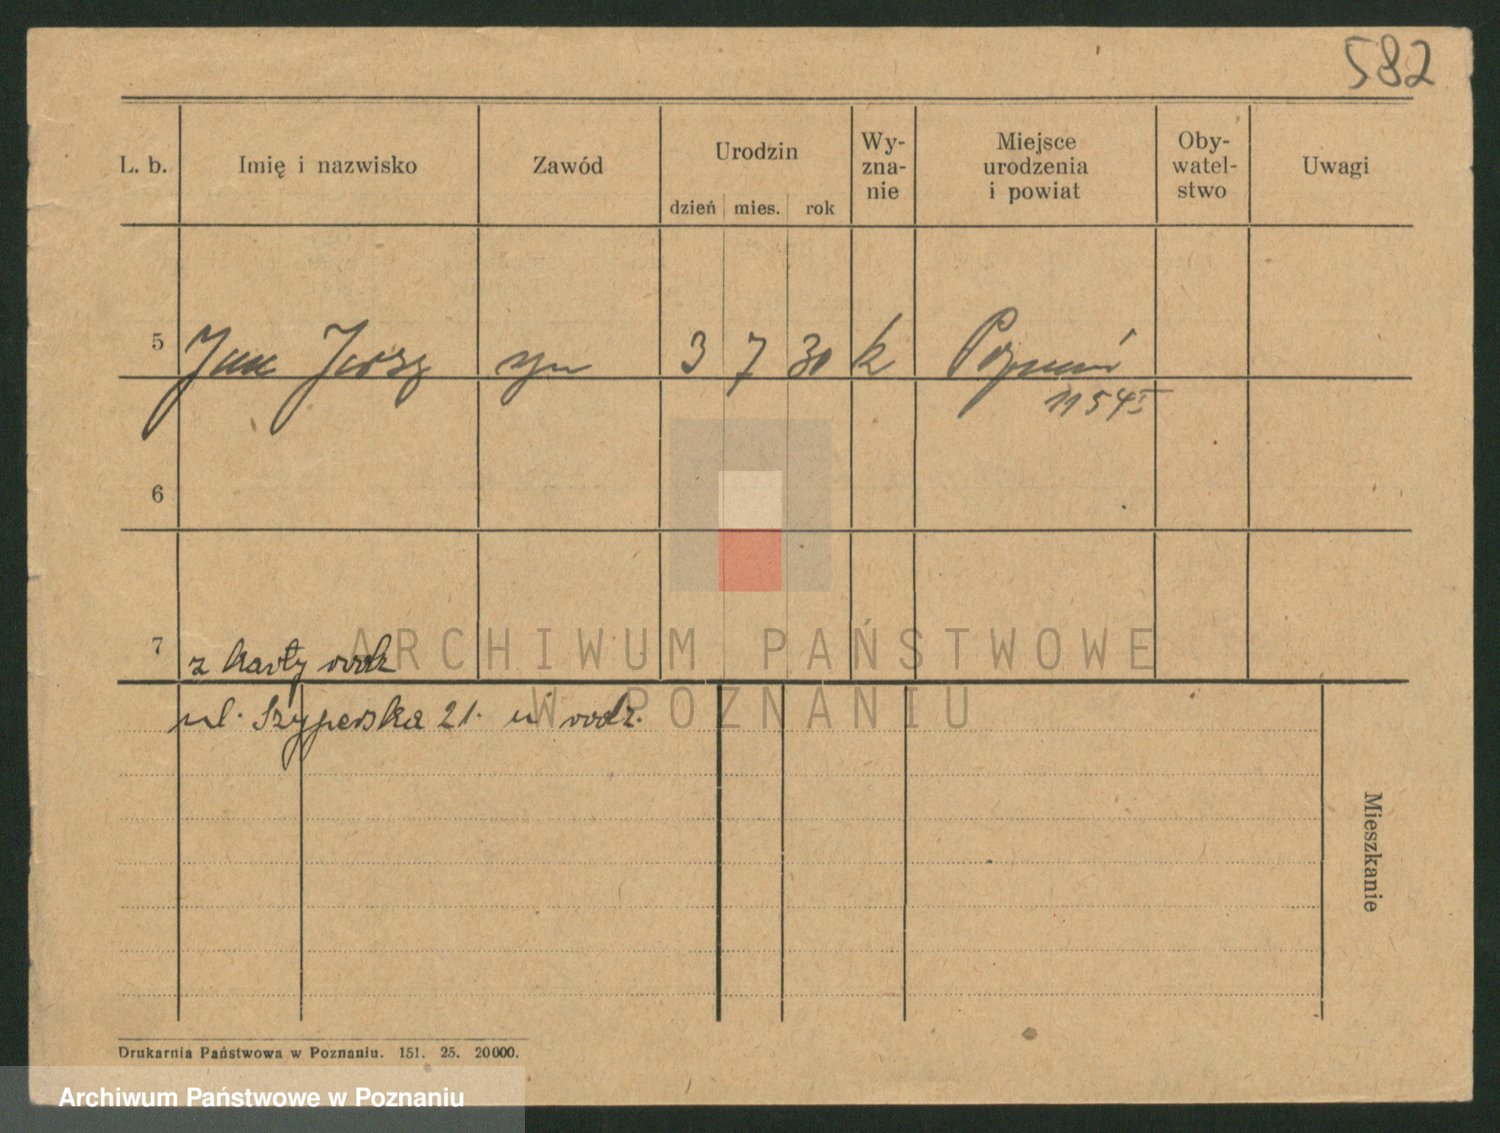 582
L. b. Imię i nazwisko Zawód Urodzin dzień mies. rok Wy-zna-nie Miejsce urodzenia i powiat Oby-watel-stwo Uwagi
5 Jan Jerzy syn 3 7 30 k Poznań
1154 I
6
7 z karty rodz
ul. Szyperska 21. u rodz.
Mieszkanie
ARCHIWUM PAŃSTWOWE
W POZNANIU
Drukarnia Państwowa w Poznaniu. 151. 25. 20000.
Archiwum Państwowe w Poznaniu